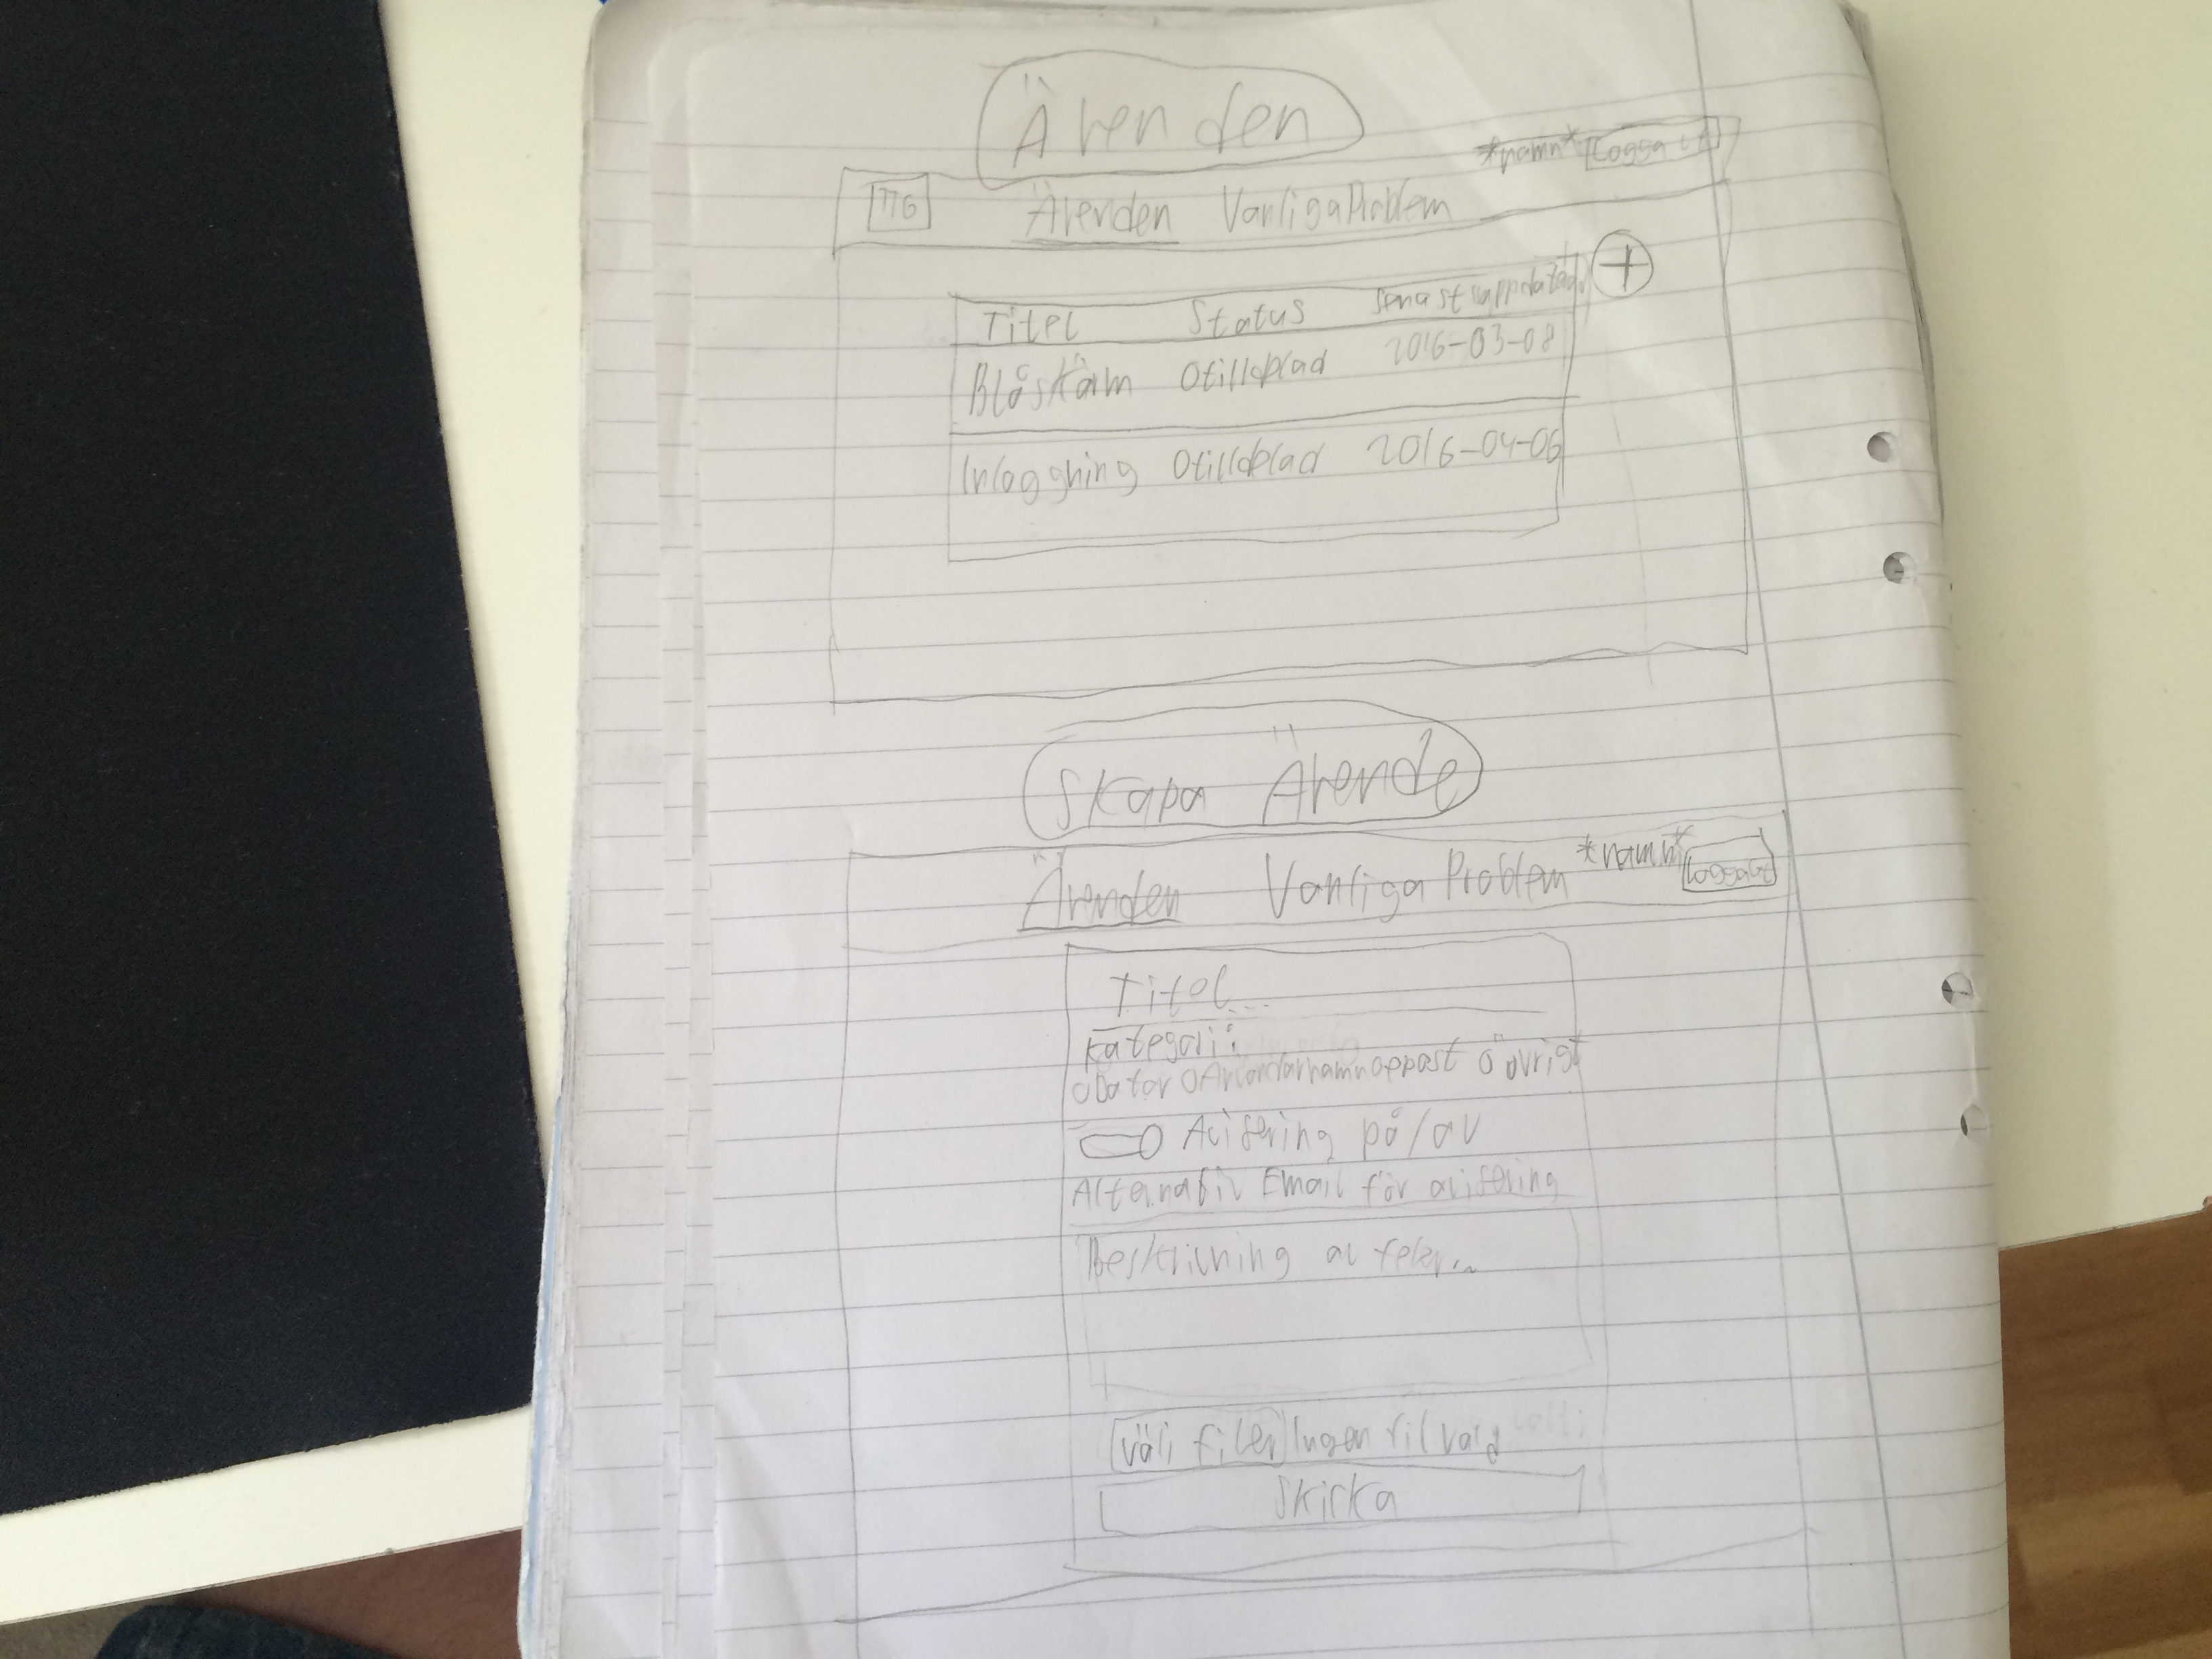 Ärenden
*namn* Logga ut
TTG Ärenden Vanliga Problem
Titel Status Senast uppdaterad +
Blåskärm Otilldelad 2016-03-08
Inloggning Otilldelad 2016-04-06
Skapa Ärende
*namn* Logga ut
Ärenden Vanliga Problem
Titel...
Kategori:
O Dator O Användarnamn O Epost O Övrigt
Avisering på/av
Alternativ Email för avisering
Beskrivning av felet...
Välj filer Ingen fil vald
Skicka